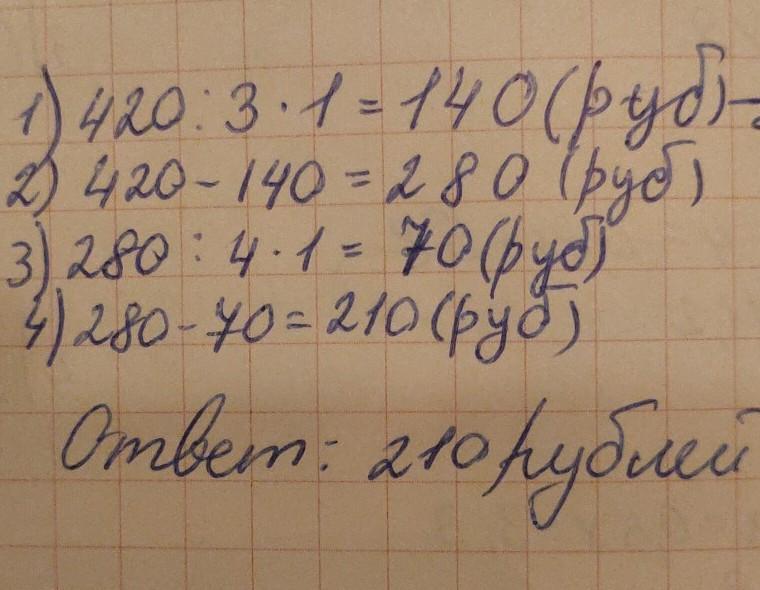 1) 420 : 3 · 1 = 140 (руб) -
2) 420 - 140 = 280 (руб)
3) 280 : 4 · 1 = 70 (руб)
4) 280 - 70 = 210 (руб)
Ответ: 210 рублей